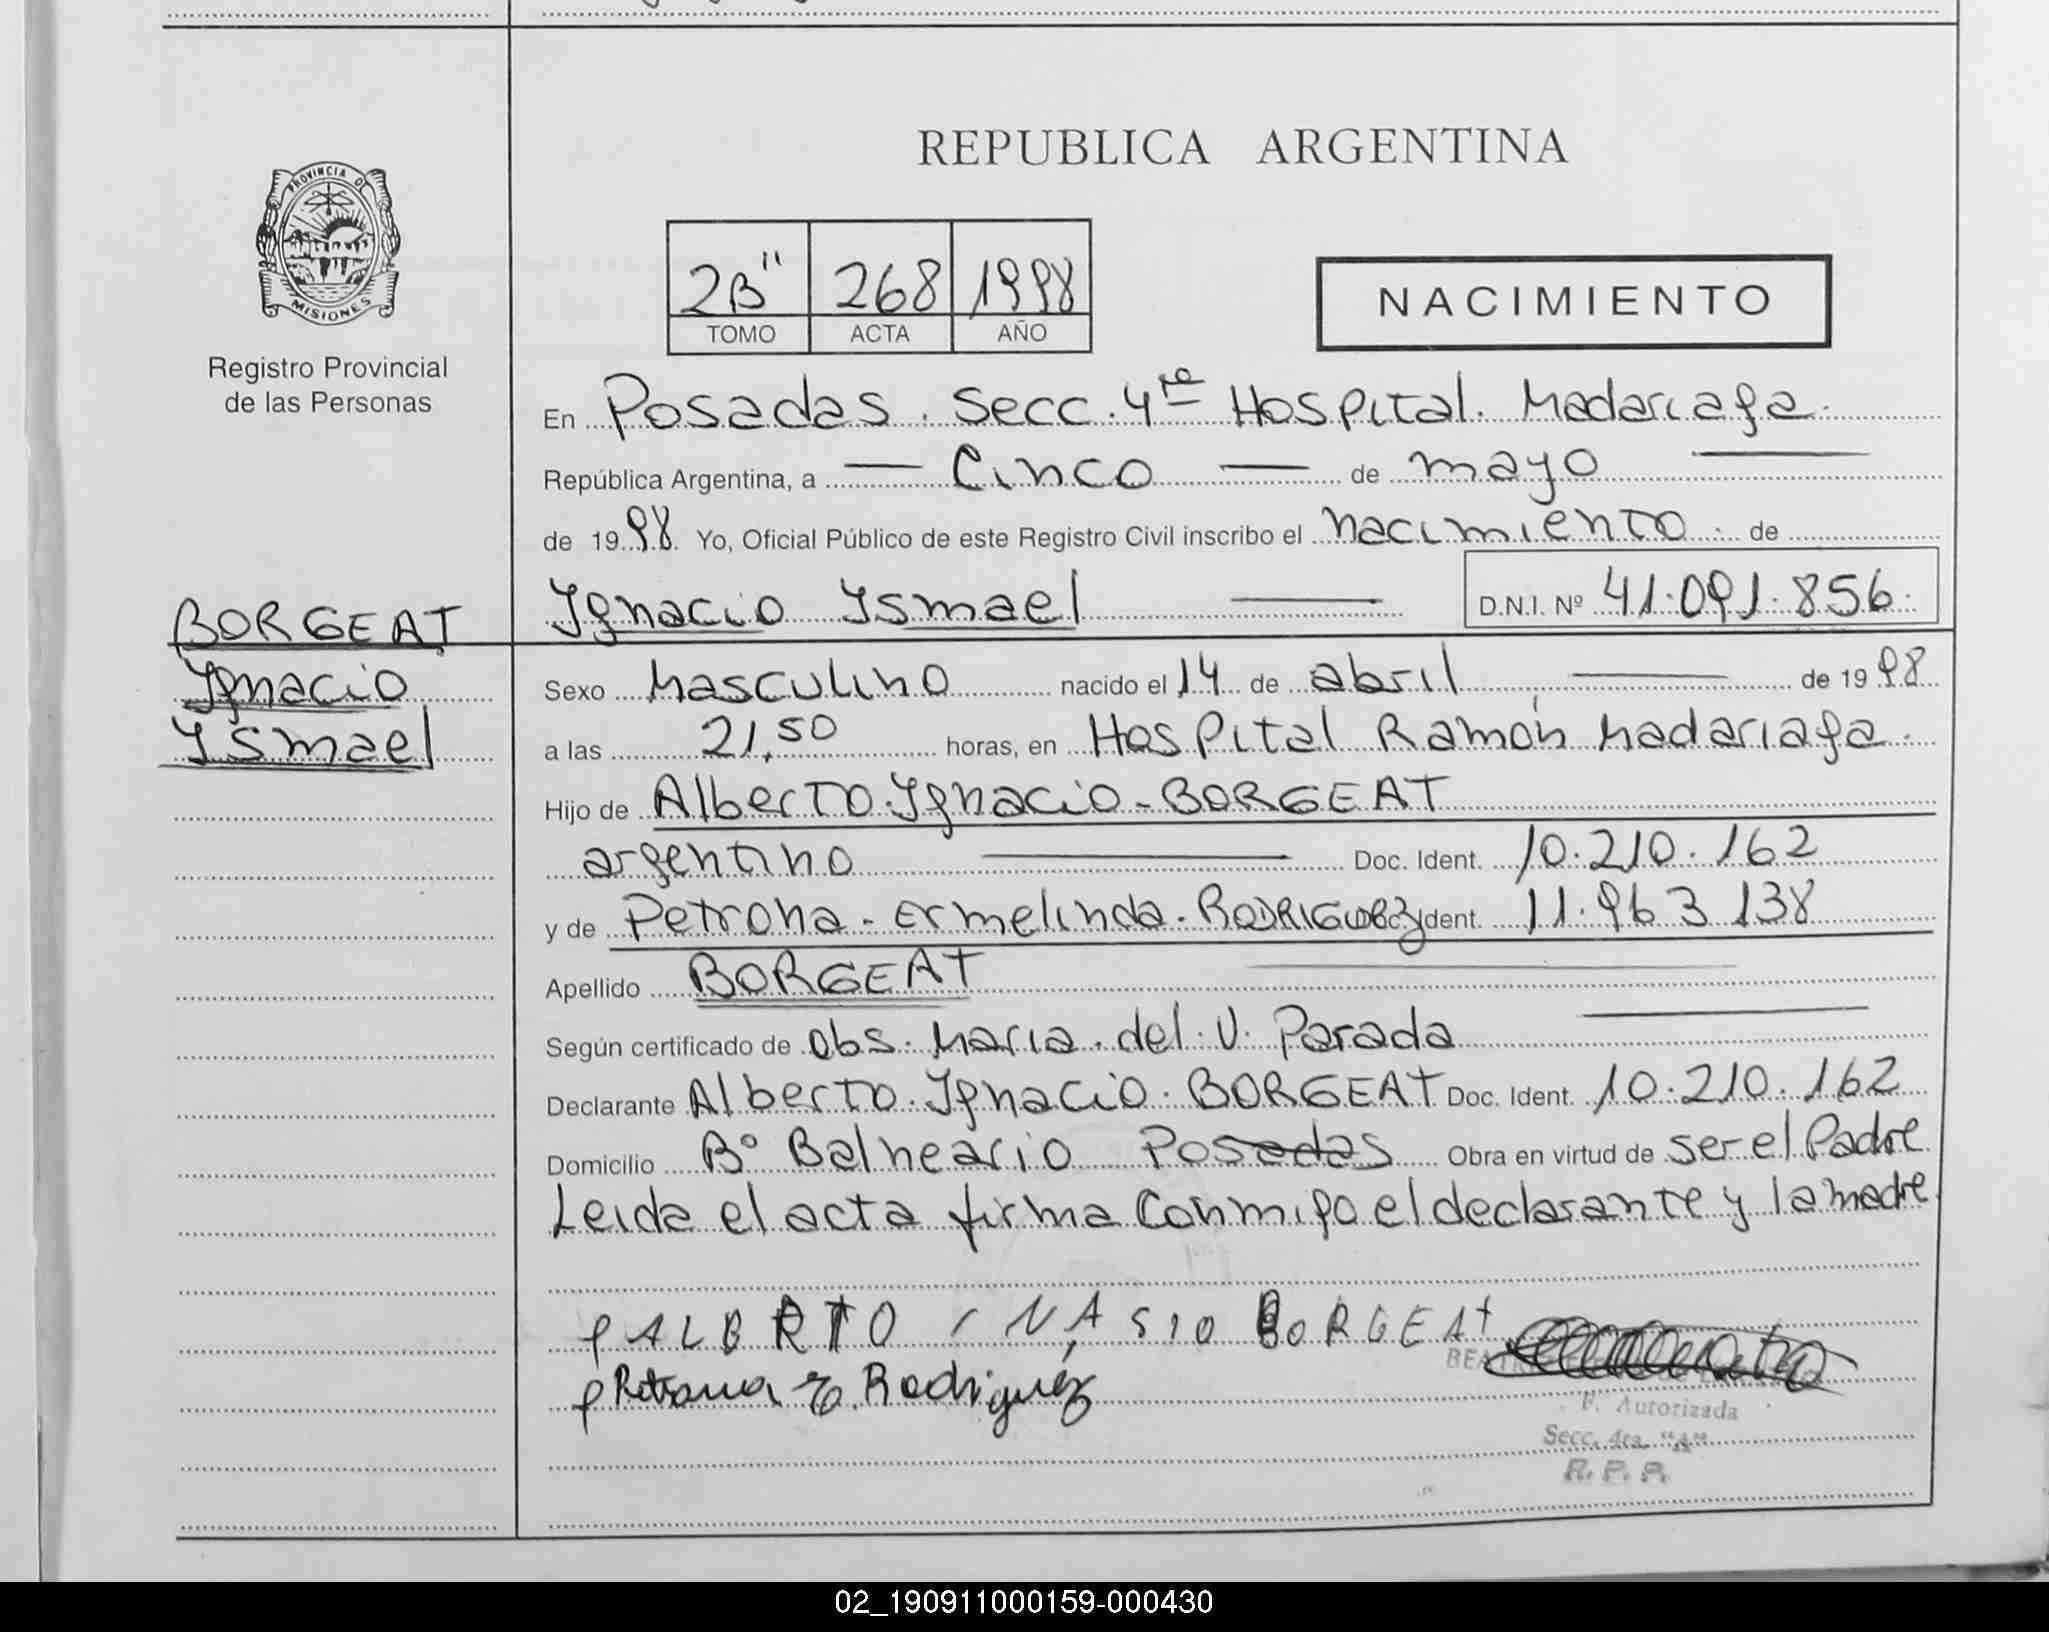 REPUBLICA ARGENTINA
PROVINCIA DE
MISIONES
Registro Provincial
de las Personas
2B" 268 1998
TOMO ACTA AÑO
NACIMIENTO
En Posadas. Secc. 4ta Hospital. Madariaga.
República Argentina, a — Cinco — de mayo —
de 1998. Yo, Oficial Público de este Registro Civil inscribo el nacimiento. de
Ignacio Ismael — D.N.I. Nº 41.091.856.
BORGEAT
Ignacio
Ismael
Sexo Masculino nacido el 14 de abril — de 1998
a las 21,50 horas, en Hospital Ramón Madariaga.
Hijo de Alberto. Ignacio - BORGEAT
argentino — Doc. Ident. 10.210.162
y de Petrona - Ermelinda. RODRIGUEZ Ident. 11.963 138
Apellido BORGEAT —
Según certificado de Obs. Maria. del. V. Parada —
Declarante Alberto. Ignacio. BORGEAT Doc. Ident. 10.210.162
Domicilio Bº Balneario Posadas Obra en virtud de ser el Padre
Leida el acta firma Conmigo el declarante y la madre.
ALBRTO INASIO BORGEAT
Petrona E. Rodriguez
F. Autorizada
Secc. 4ta. "A"
R. P. P.
02_190911000159-000430